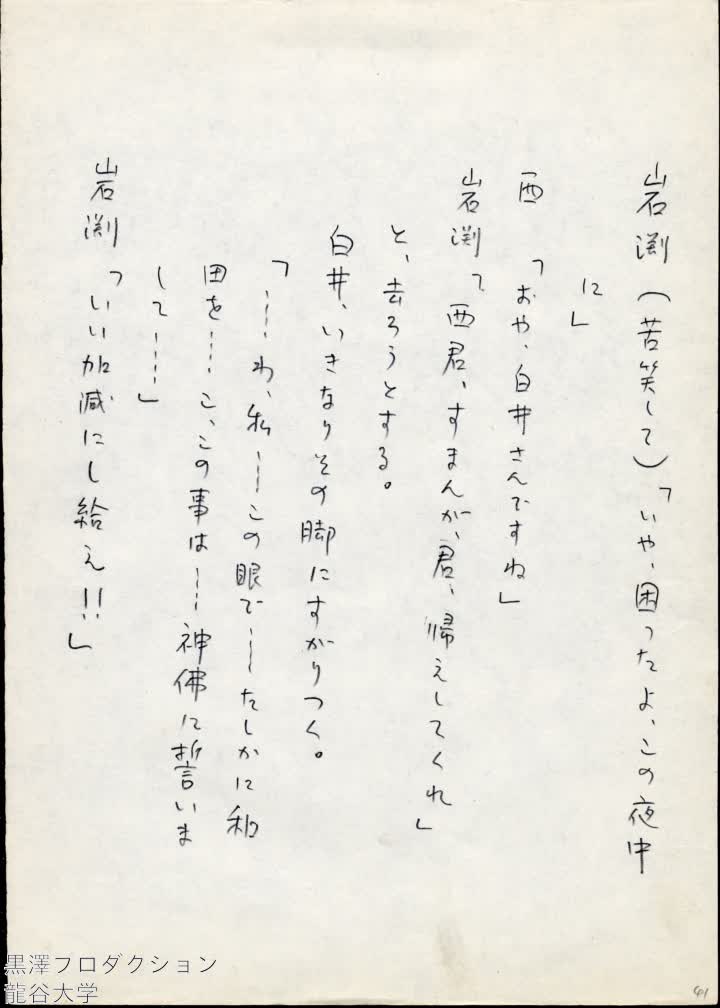 岩渕（苦笑して）「いや、困ったよ、この夜中
に」
西　「おや、白井さんですね」
岩渕「西君、すまんが、君、帰えしてくれ」
と、去ろうとする。
白井、いきなりその脚にすがりつく。
「……わ、私……この眼で……たしかに和
田を……こ、この事は……神佛に誓いま
して……」
岩渕「いい加減にし給え!!」
黒澤プロダクション
龍谷大学